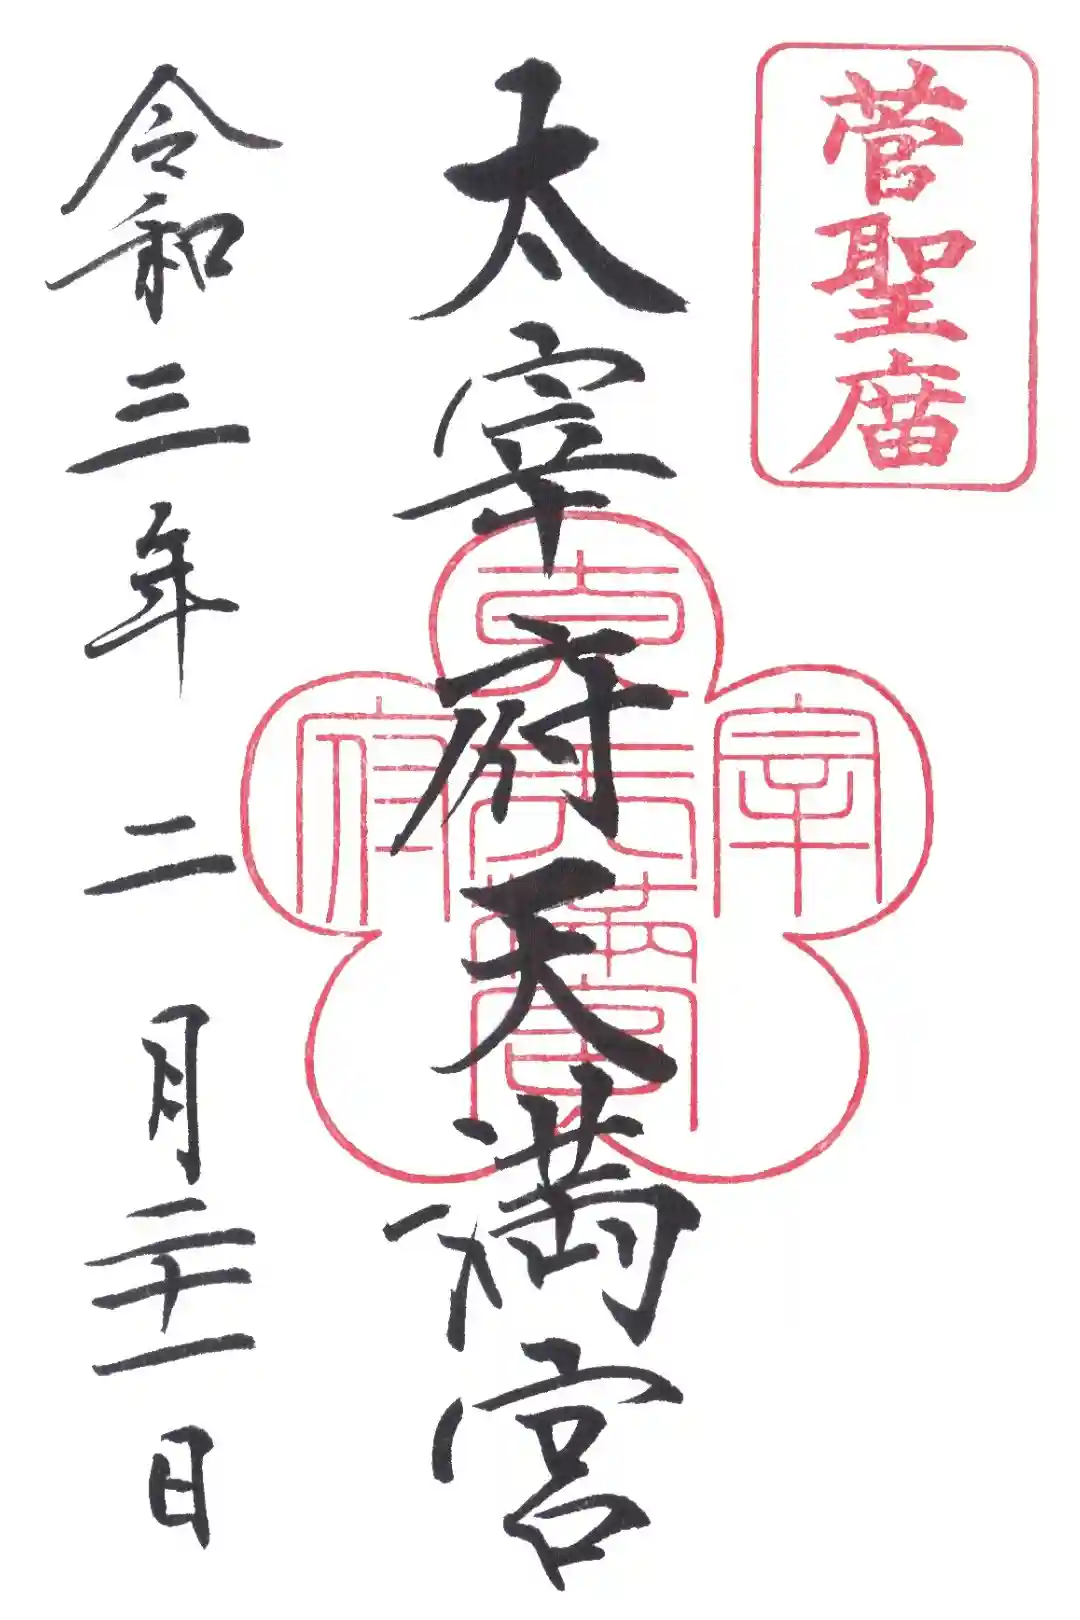 菅聖庿
太宰府天満宮
令和三年二月二十一日
宰
府
天満宮